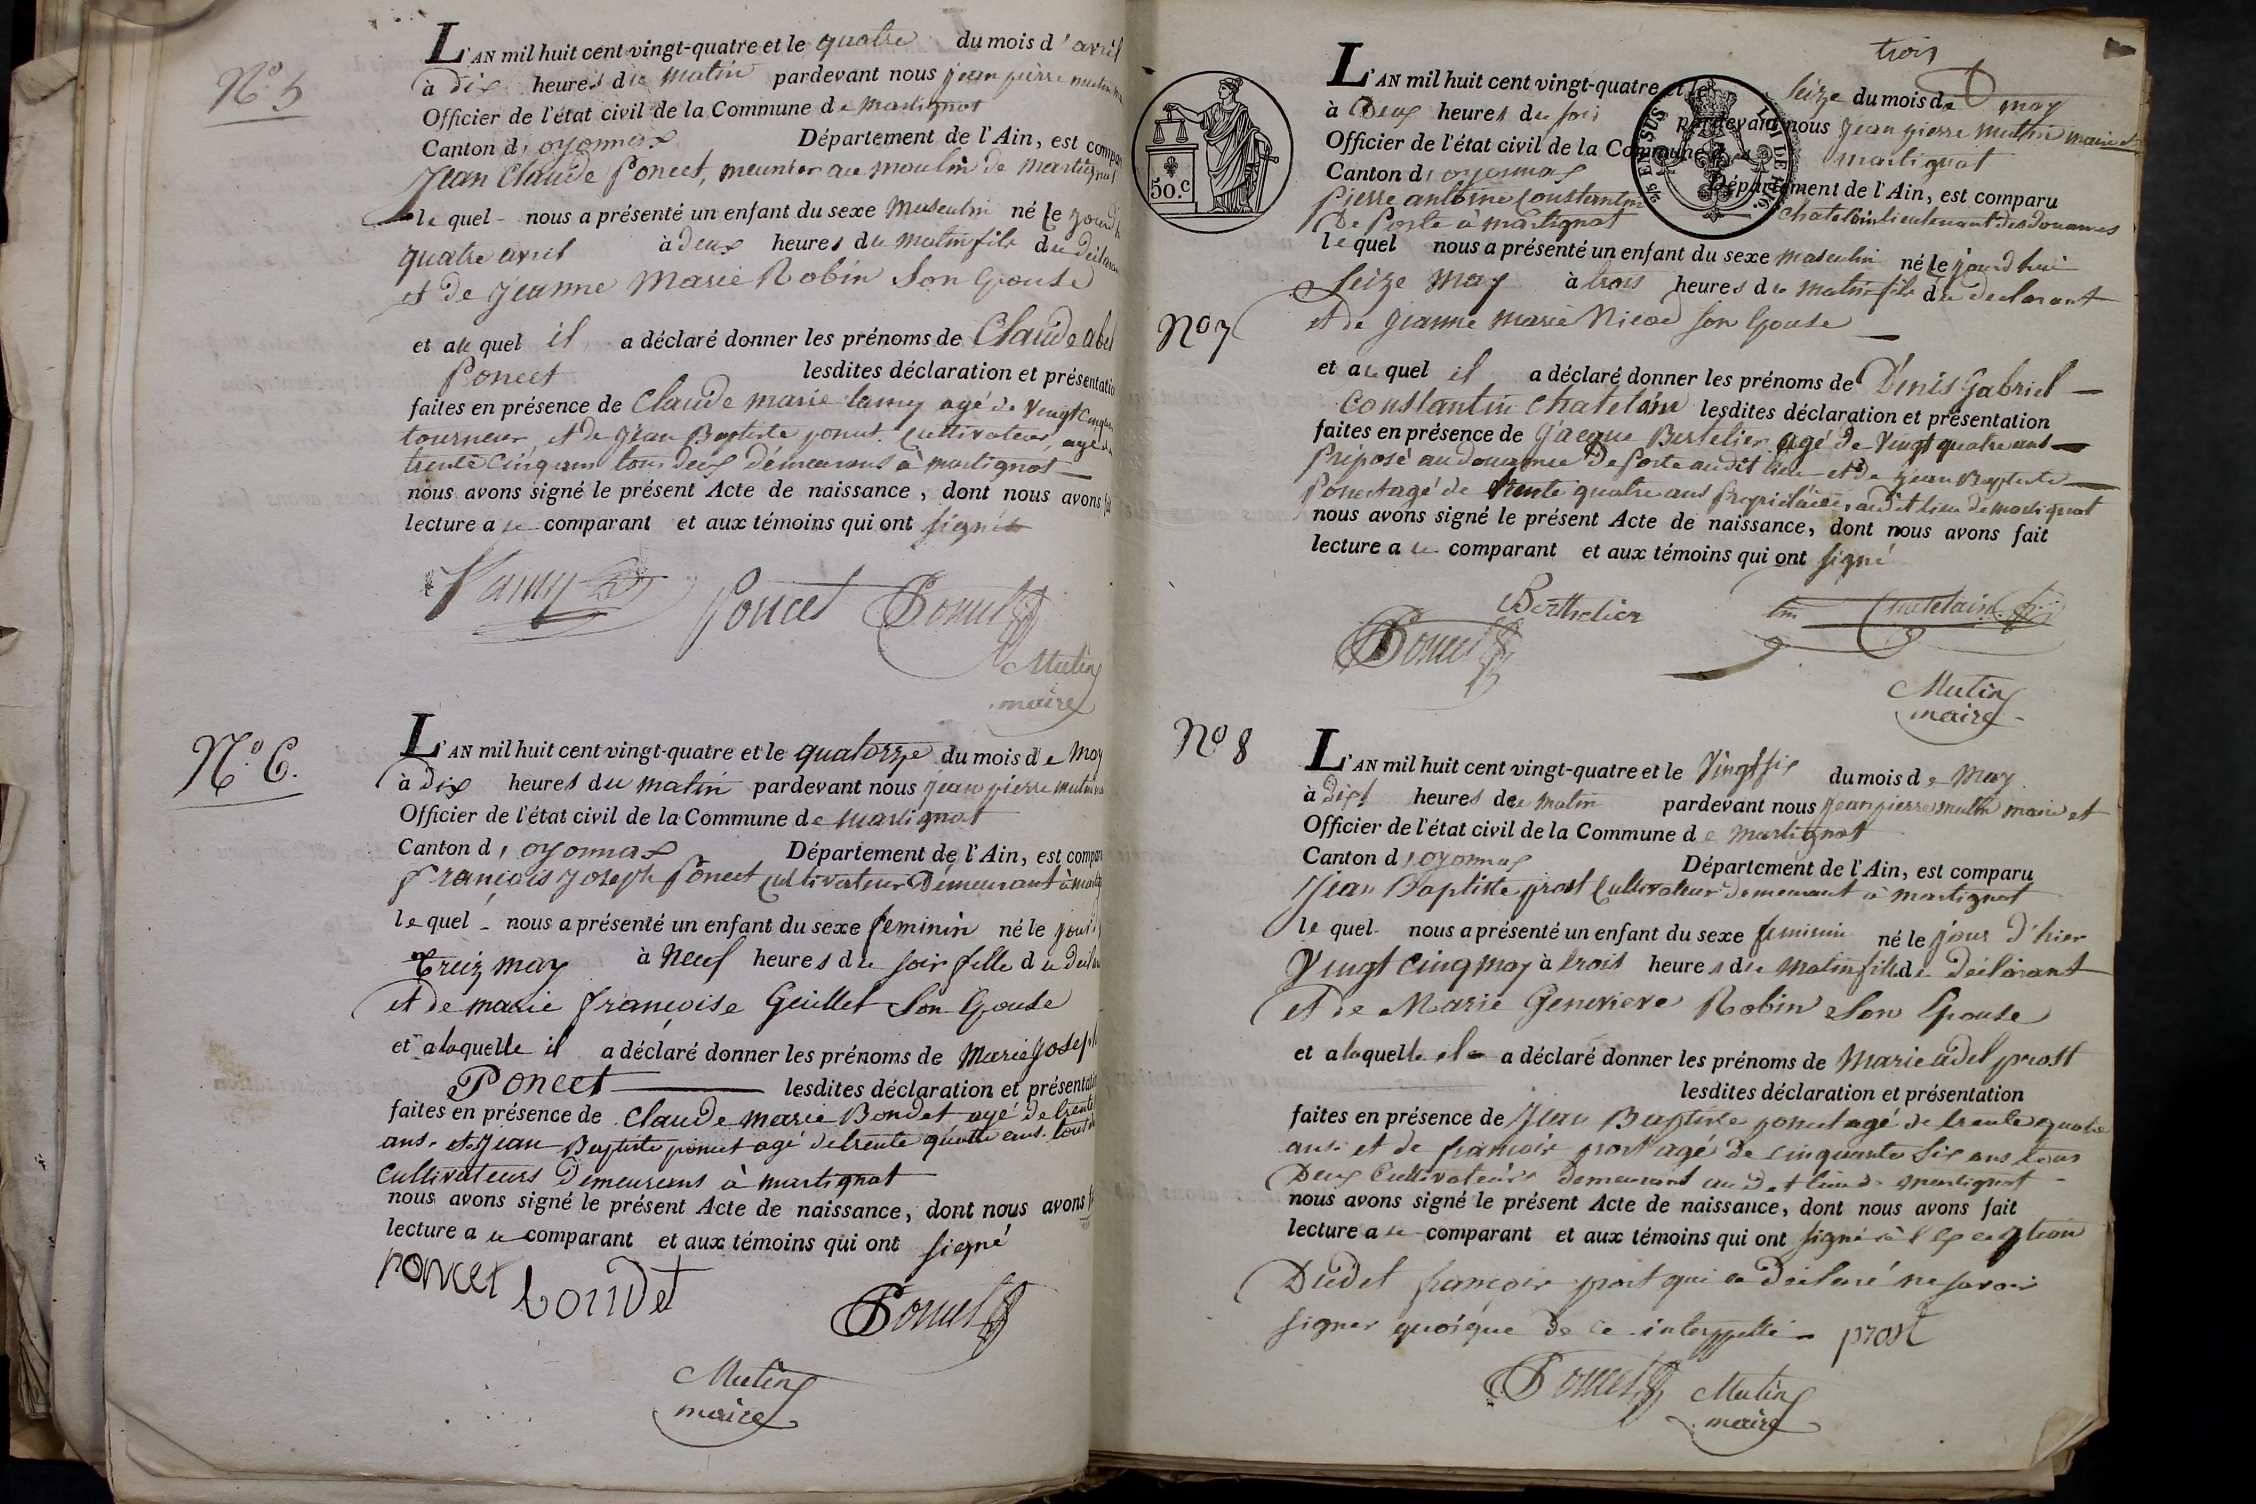 N.° 5
L'AN mil huit cent vingt-quatre et le quatre du mois d' avril
à dix heures du matin pardevant nous jean pierre mutin
Officier de l'état civil de la Commune de Martignat
Canton d'oyonnax Département de l'Ain, est compar
Jean Claude Poncet, meunier au moulin de Martignat
lequel nous a présenté un enfant du sexe Masculin né le jourd'h
quatre avril à deux heures du matin fils du déclaran
et de Jeanne Marie Robin Son Epouse
et auquel il a déclaré donner les prénoms de Claude abel
Poncet lesdites déclaration et présentatio
faites en présence de Claude Marie lamy agé de Vingt Cinq ans
tourneur, et de Jean Baptiste poncet Cultivateur, agé de
trente Cinq ans tous deux démeurans à martignat
nous avons signé le présent Acte de naissance, dont nous avons fai
lecture a u comparant et aux témoins qui ont signés
Lamy Poncet Poncet
Mutin
maire
N.° 6.
L'AN mil huit cent vingt-quatre et le quatorze du mois de May
à Dix heures du matin pardevant nous jean pierre mutin
Officier de l'état civil de la Commune de Martignat
Canton d'oyonnax Département de l'Ain, est compar
François Joseph Poncet Cultivateur Démeurant à mart
lequel nous a présenté un enfant du sexe feminin né le jour
Treiz may à Neuf heures du soir fille du decl
et de marie françoise Guillet Son Epouse
et a laquelle il a déclaré donner les prénoms de Marie Joseph
Poncet lesdites déclaration et présentati
faites en présence de Claude Marie Bondet agé de trente
ans. et Jean Baptiste poncet agé de trente quatre ans. tout
Cultivateurs Demeurans à martignat
nous avons signé le présent Acte de naissance, dont nous avons f
lecture a u comparant et aux témoins qui ont signé
poncet bondet Poncet
Mutin
maire
trois
50.c
N° 7
L'AN mil huit cent vingt-quatre et le Seize du mois de may
à Deux heures du soir pardevant nous Jean pierre Mutin maire et
Officier de l'état civil de la Commune de martignat
Canton d'oyonnax Département de l'Ain, est comparu
Pierre antoine Constantin chatelain lieutenant des douanes
De Poste à martignat
lequel nous a présenté un enfant du sexe masculin né le jourd hui
Seize May à trois heures du matin fils du declarant
et de Jeanne Marie Nicod son Epouse
et auquel il a déclaré donner les prénoms de Denis Gabriel
Constantin Chatelain lesdites déclaration et présentation
faites en présence de Jacque Bertelier agé de Vingt quatre ans
Préposé au douanne De Poste audit lieu et de Jean Baptiste
Poncet agé de trente quatre ans Propriétaire, audit lieu de martignat
nous avons signé le présent Acte de naissance, dont nous avons fait
lecture a u comparant et aux témoins qui ont signé
Berthelier Chatelain
Poncet
Mutin
maire
N° 8
L'AN mil huit cent vingt-quatre et le Vingt six du mois de May
à Dix heures du matin pardevant nous jean pierre mutin maire et
Officier de l'état civil de la Commune de Martignat
Canton d'oyonnax Département de l'Ain, est comparu
Jean Baptiste prost Cultivateur demeurant à Martignat
lequel nous a présenté un enfant du sexe feminin né le jour d'hier
Vingt Cinq may à trois heures du Matin fille du Déclarant
et de Marie Genevieve Robin Son Epouse
et a laquelle il a déclaré donner les prénoms de Marie adel prost
lesdites déclaration et présentation
faites en présence de Jean Baptiste poncet agé de trente quatre
ans. et de françois prost agé de cinquante Six ans tous
Deux Cultivateurs demeurant audit lieu de Martignat
nous avons signé le présent Acte de naissance, dont nous avons fait
lecture a u comparant et aux témoins qui ont signé à l'exception
Dudet françois prost qui a Déclaré ne savoir
signer quoique de ce interppellé prost
Poncet Mutin
maire